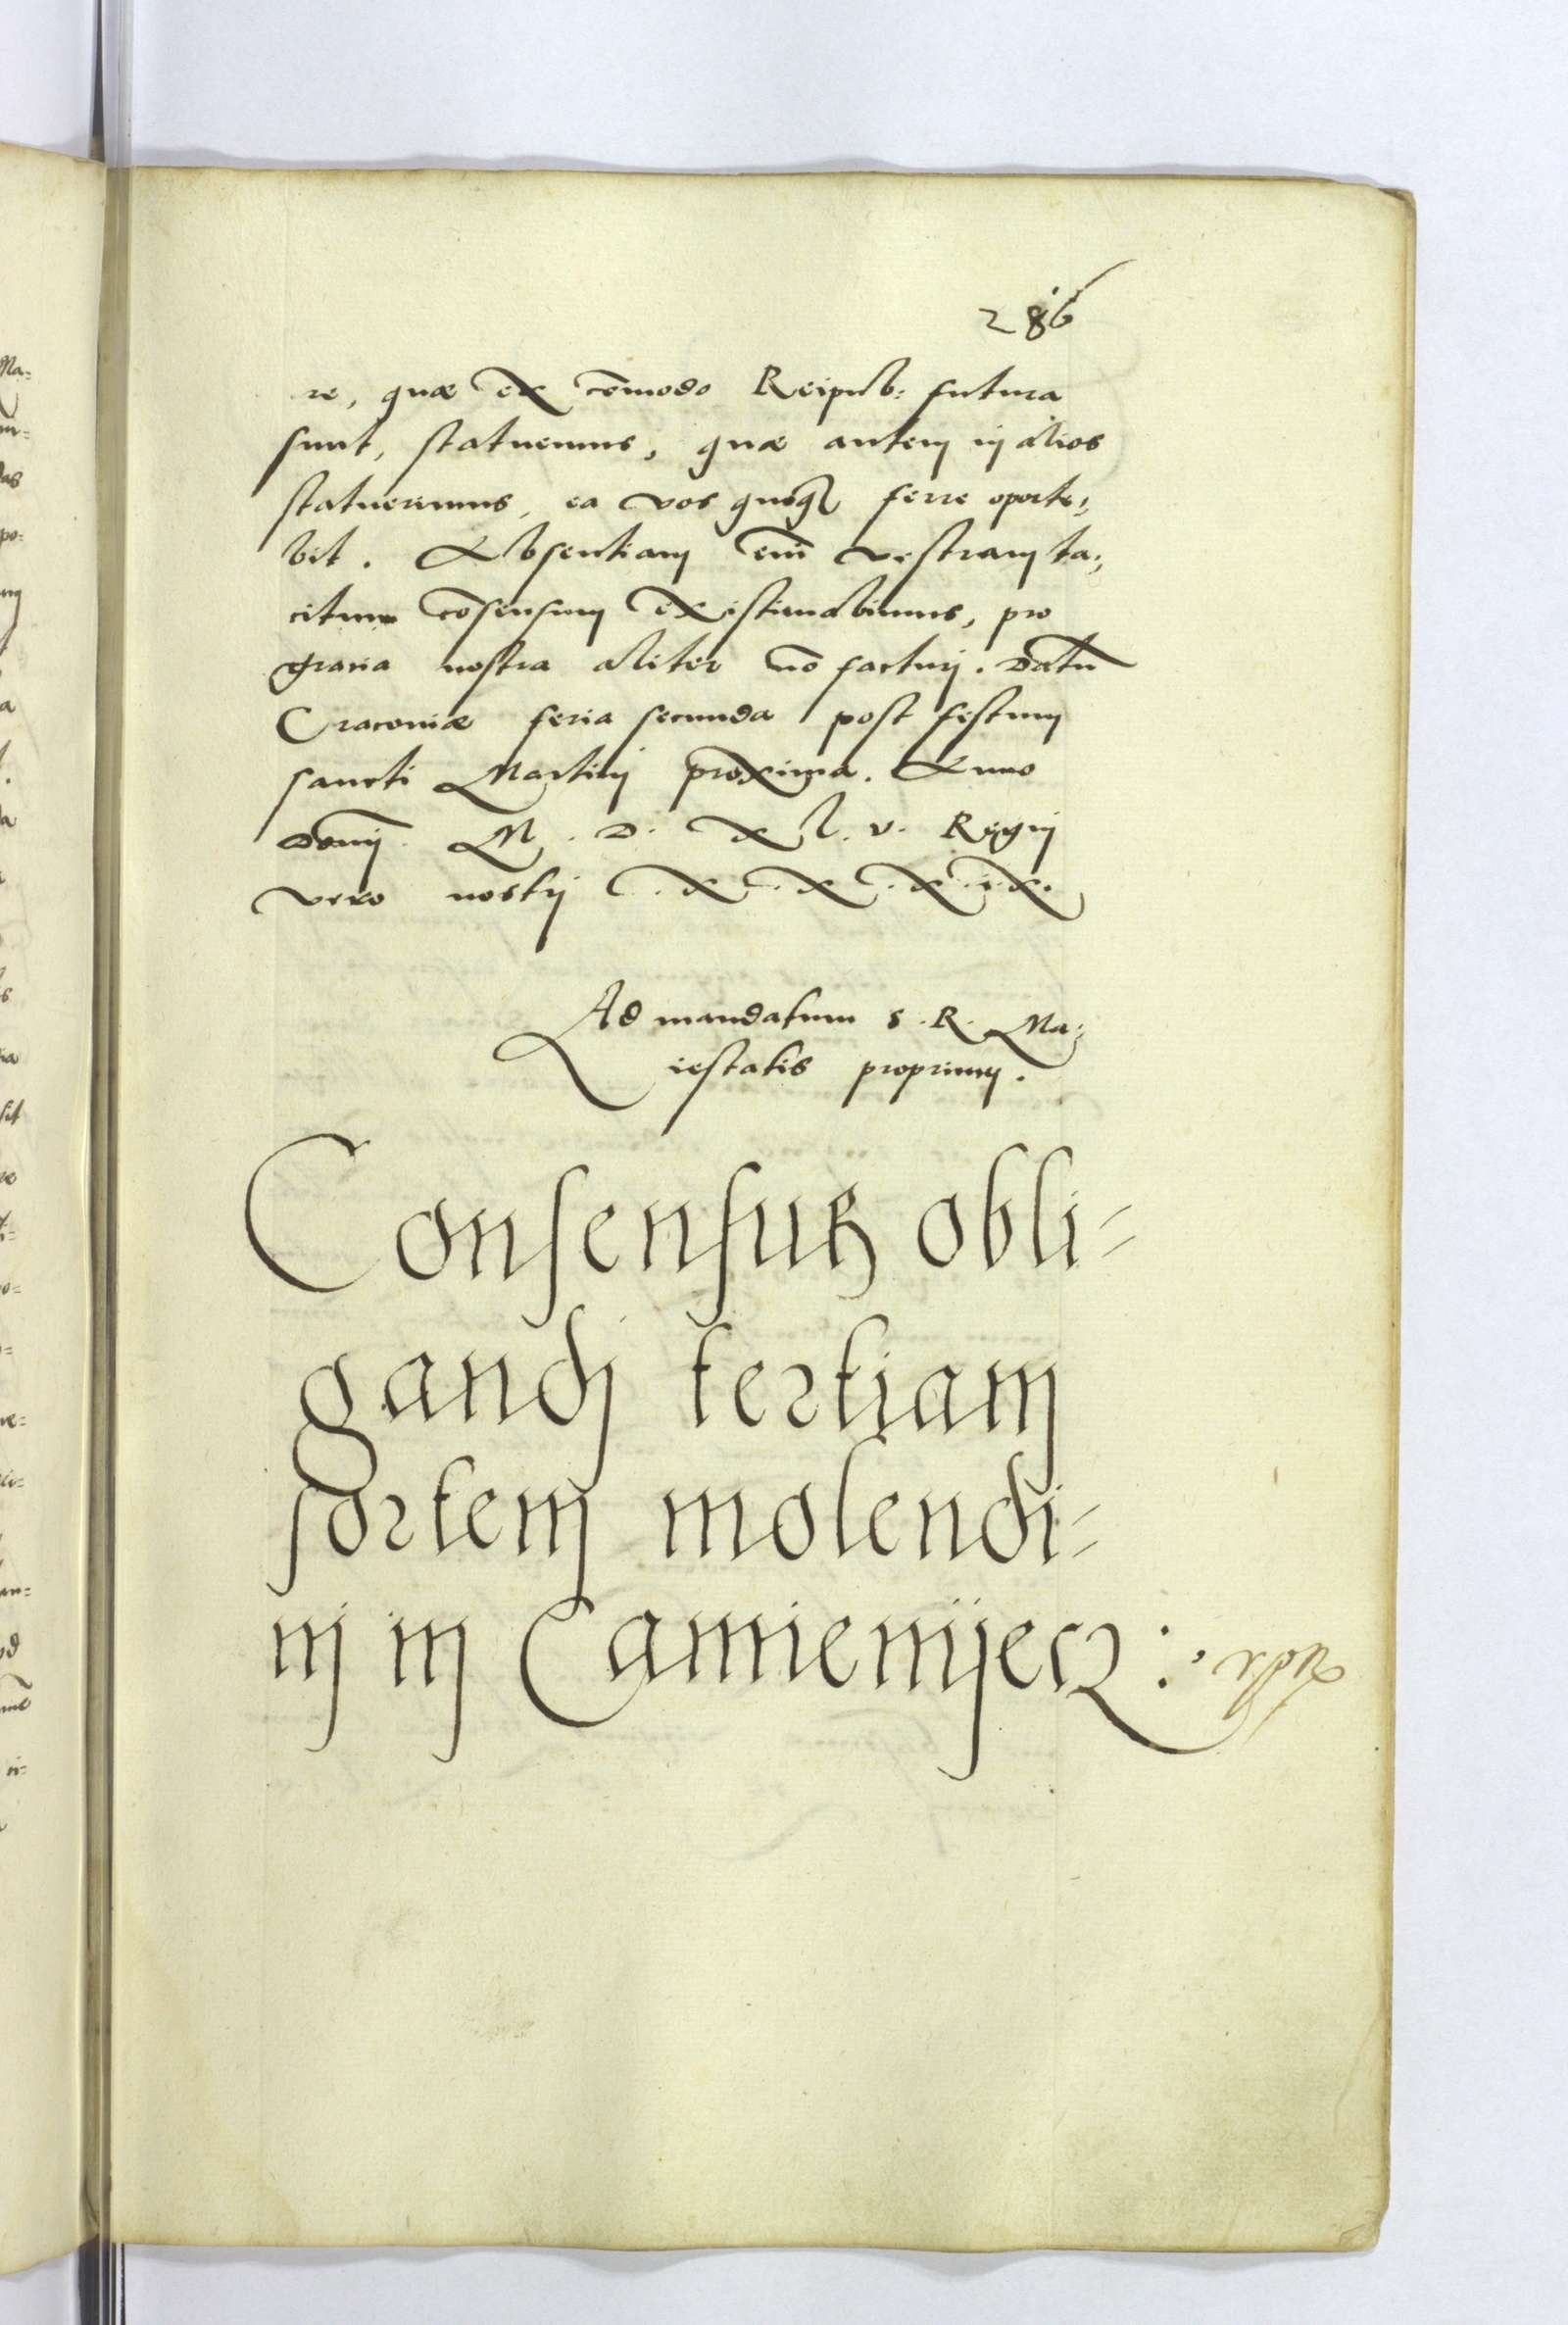 286
re, quæ ex cōmodo Reipub: futura
sunt, statuemus, quæ autem in alios
statuerimus, ea vos quoqȝ ferre oporte,
bit. Absentiam em̄ vestram ta,
citum cōsensum existimabimus, pro
gratia nostra aliter nō facturi. Datū
Cracoviæ feria secunda post festum
sancti Martini proxima. Anno
Domī M. D. XL. V. Regni
vero nostri X. X. X. i. X.
Ad mandatum S. R. Ma,
iestatis proprium.
Consensus obli-
gandi tertiam
sortem molendi-
nij in Camienijecz: